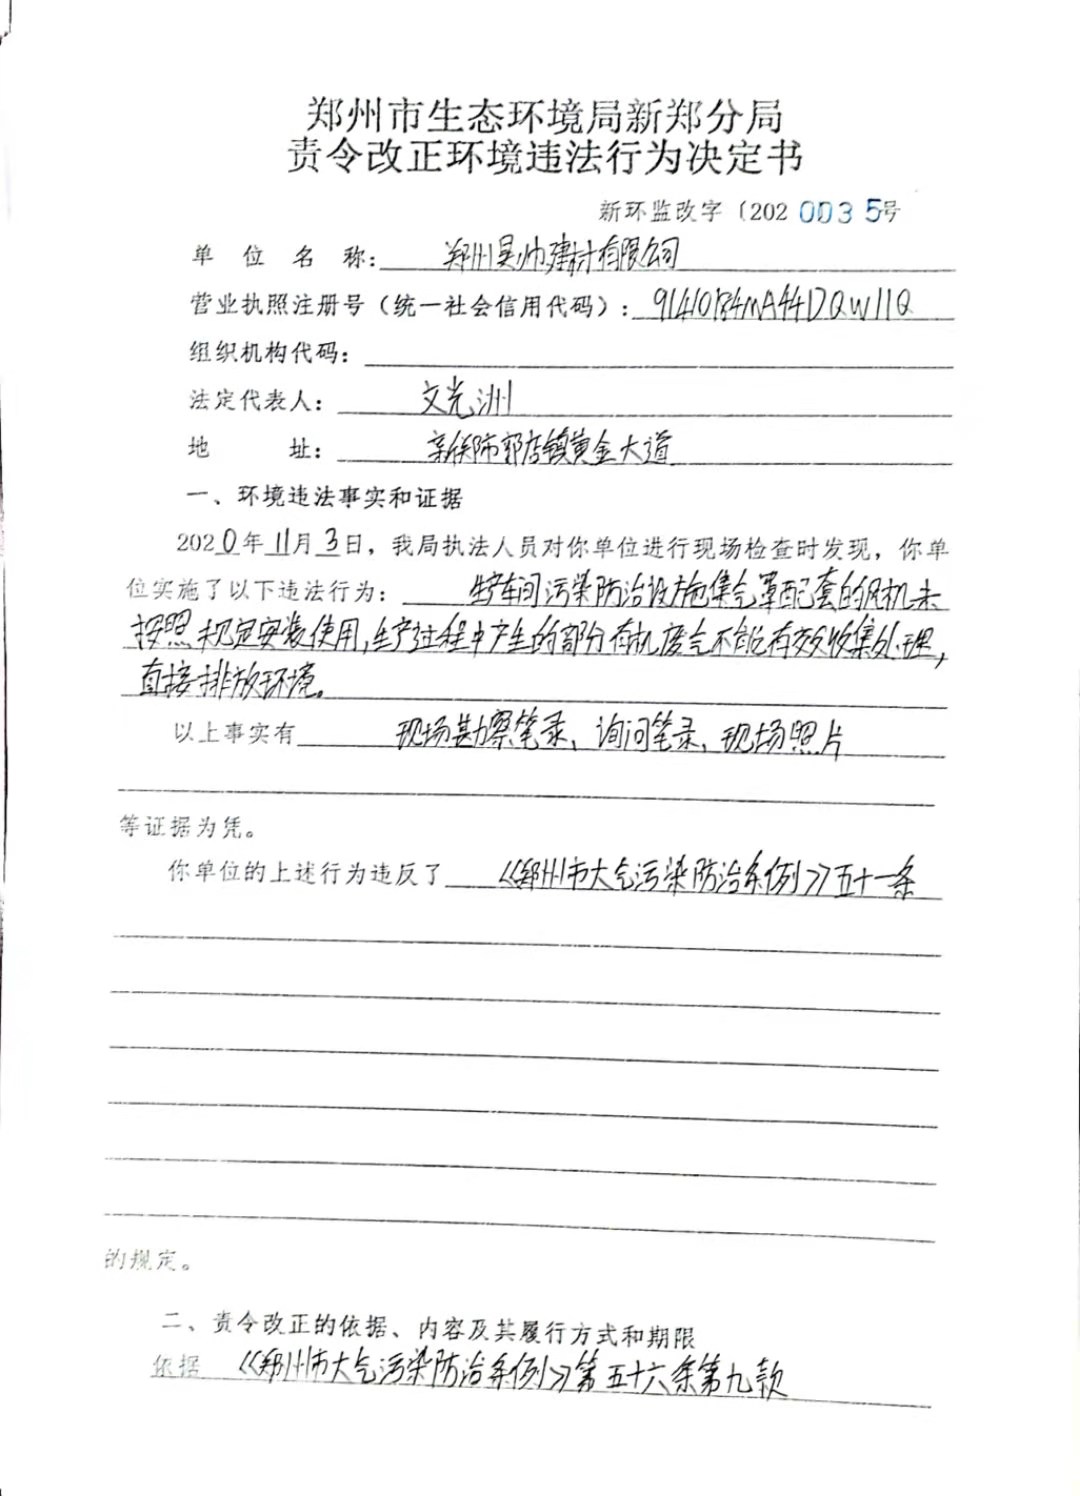 郑州市生态环境局新郑分局
责令改正环境违法行为决定书
新环监改字〔202 0035号
单位名称：郑州昊帅建材有限公司
营业执照注册号（统一社会信用代码）：91410184MA44DQW11Q
组织机构代码：
法定代表人：文光洲
地址：新郑市郭店镇黄金大道
一、环境违法事实和证据
2020年11月3日，我局执法人员对你单位进行现场检查时发现，你单
位实施了以下违法行为：车间污染防治设施集气罩配套的风机未
按照规定安装使用，生产过程中产生的部分有机废气不能有效收集处理，
直接排放环境。
以上事实有现场勘察笔录、询问笔录、现场照片
等证据为凭。
你单位的上述行为违反了《郑州市大气污染防治条例》五十一条
的规定。
二、责令改正的依据、内容及其履行方式和期限
依据《郑州市大气污染防治条例》第五十六条第九款